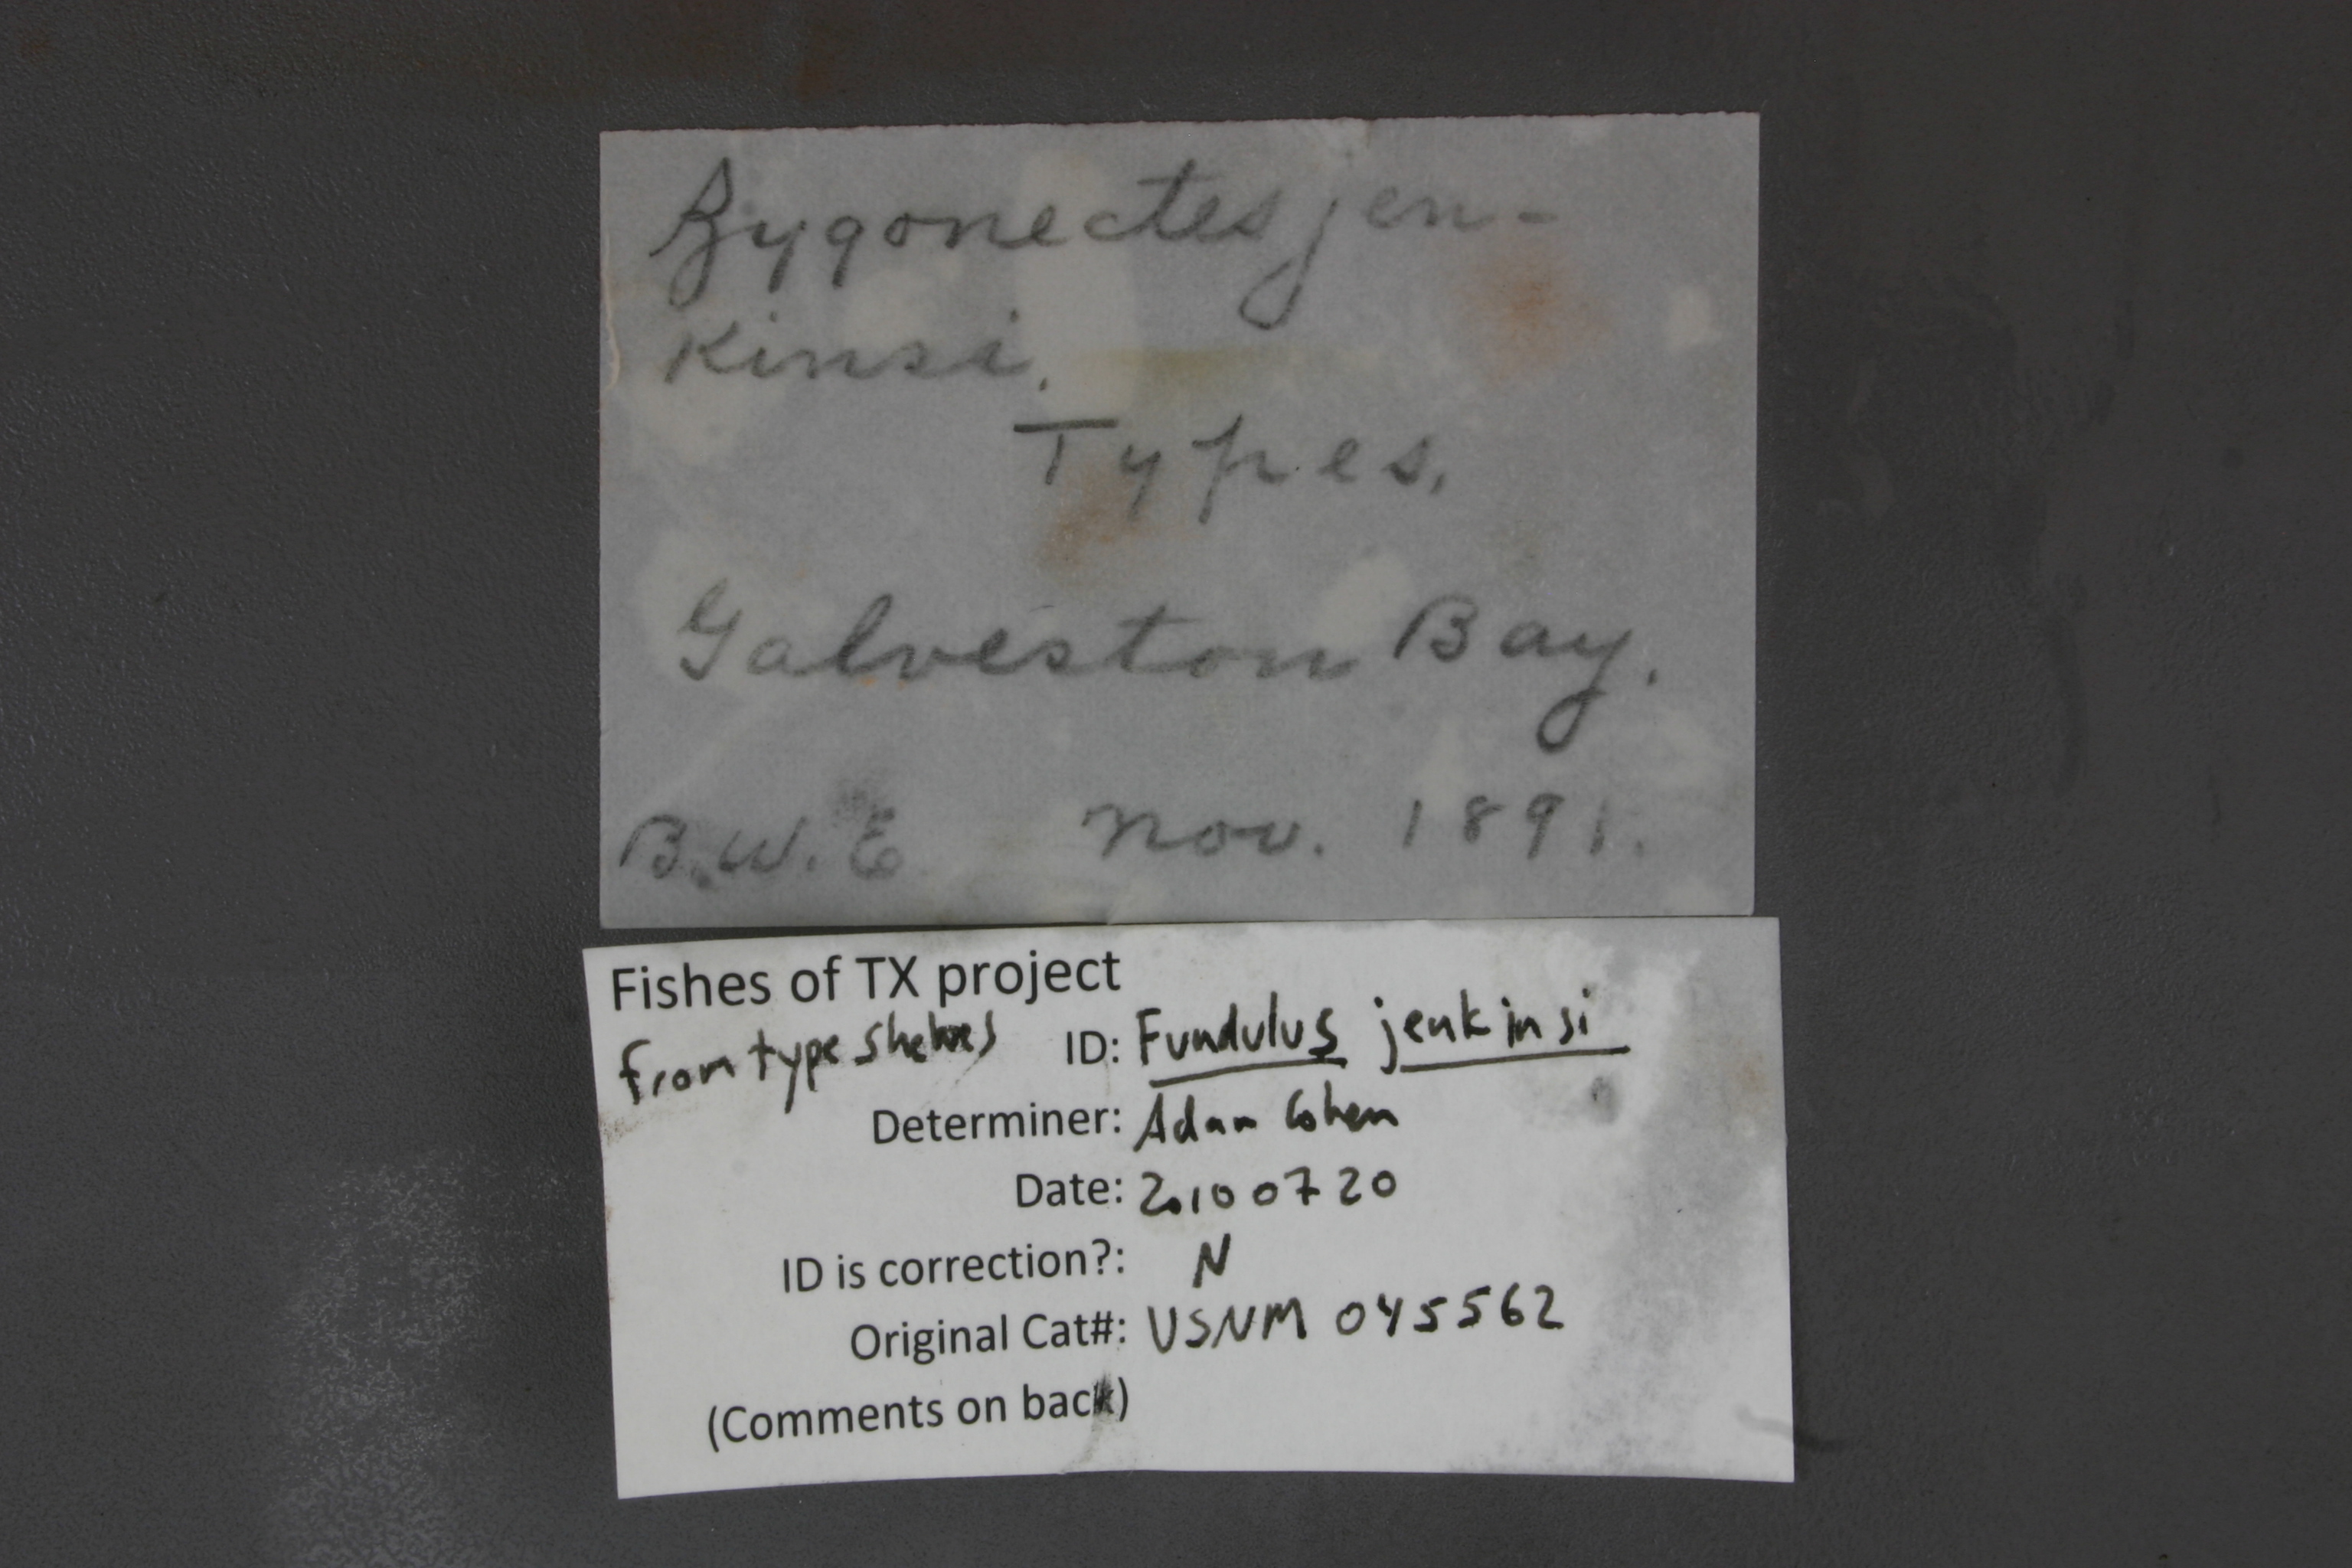 Zygonectes jen-
kinsi.
Types.
Galveston Bay.
B.W.E Nov. 1891.
Fishes of TX project
from type shelves ID: Fundulus jenkinsi
Determiner: Adam Cohen
Date: 20100720
ID is correction?: N
Original Cat#: USNM 045562
(Comments on back)